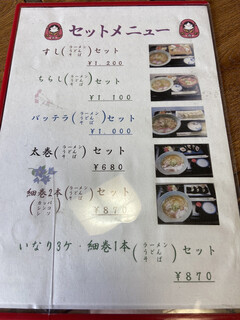 セットメニュー
すし(ラーメン うどん そば)セット
¥1,200
ちらし(ラーメン うどん そば)セット
¥1,100
バッテラ(ラーメン うどん そば)セット
¥1,000
太巻(ラーメン うどん そば)セット
¥680
細巻2本(ラーメン うどん そば)セット
¥870
いなり3ケ・細巻1本(ラーメン うどん そば)セット
¥870